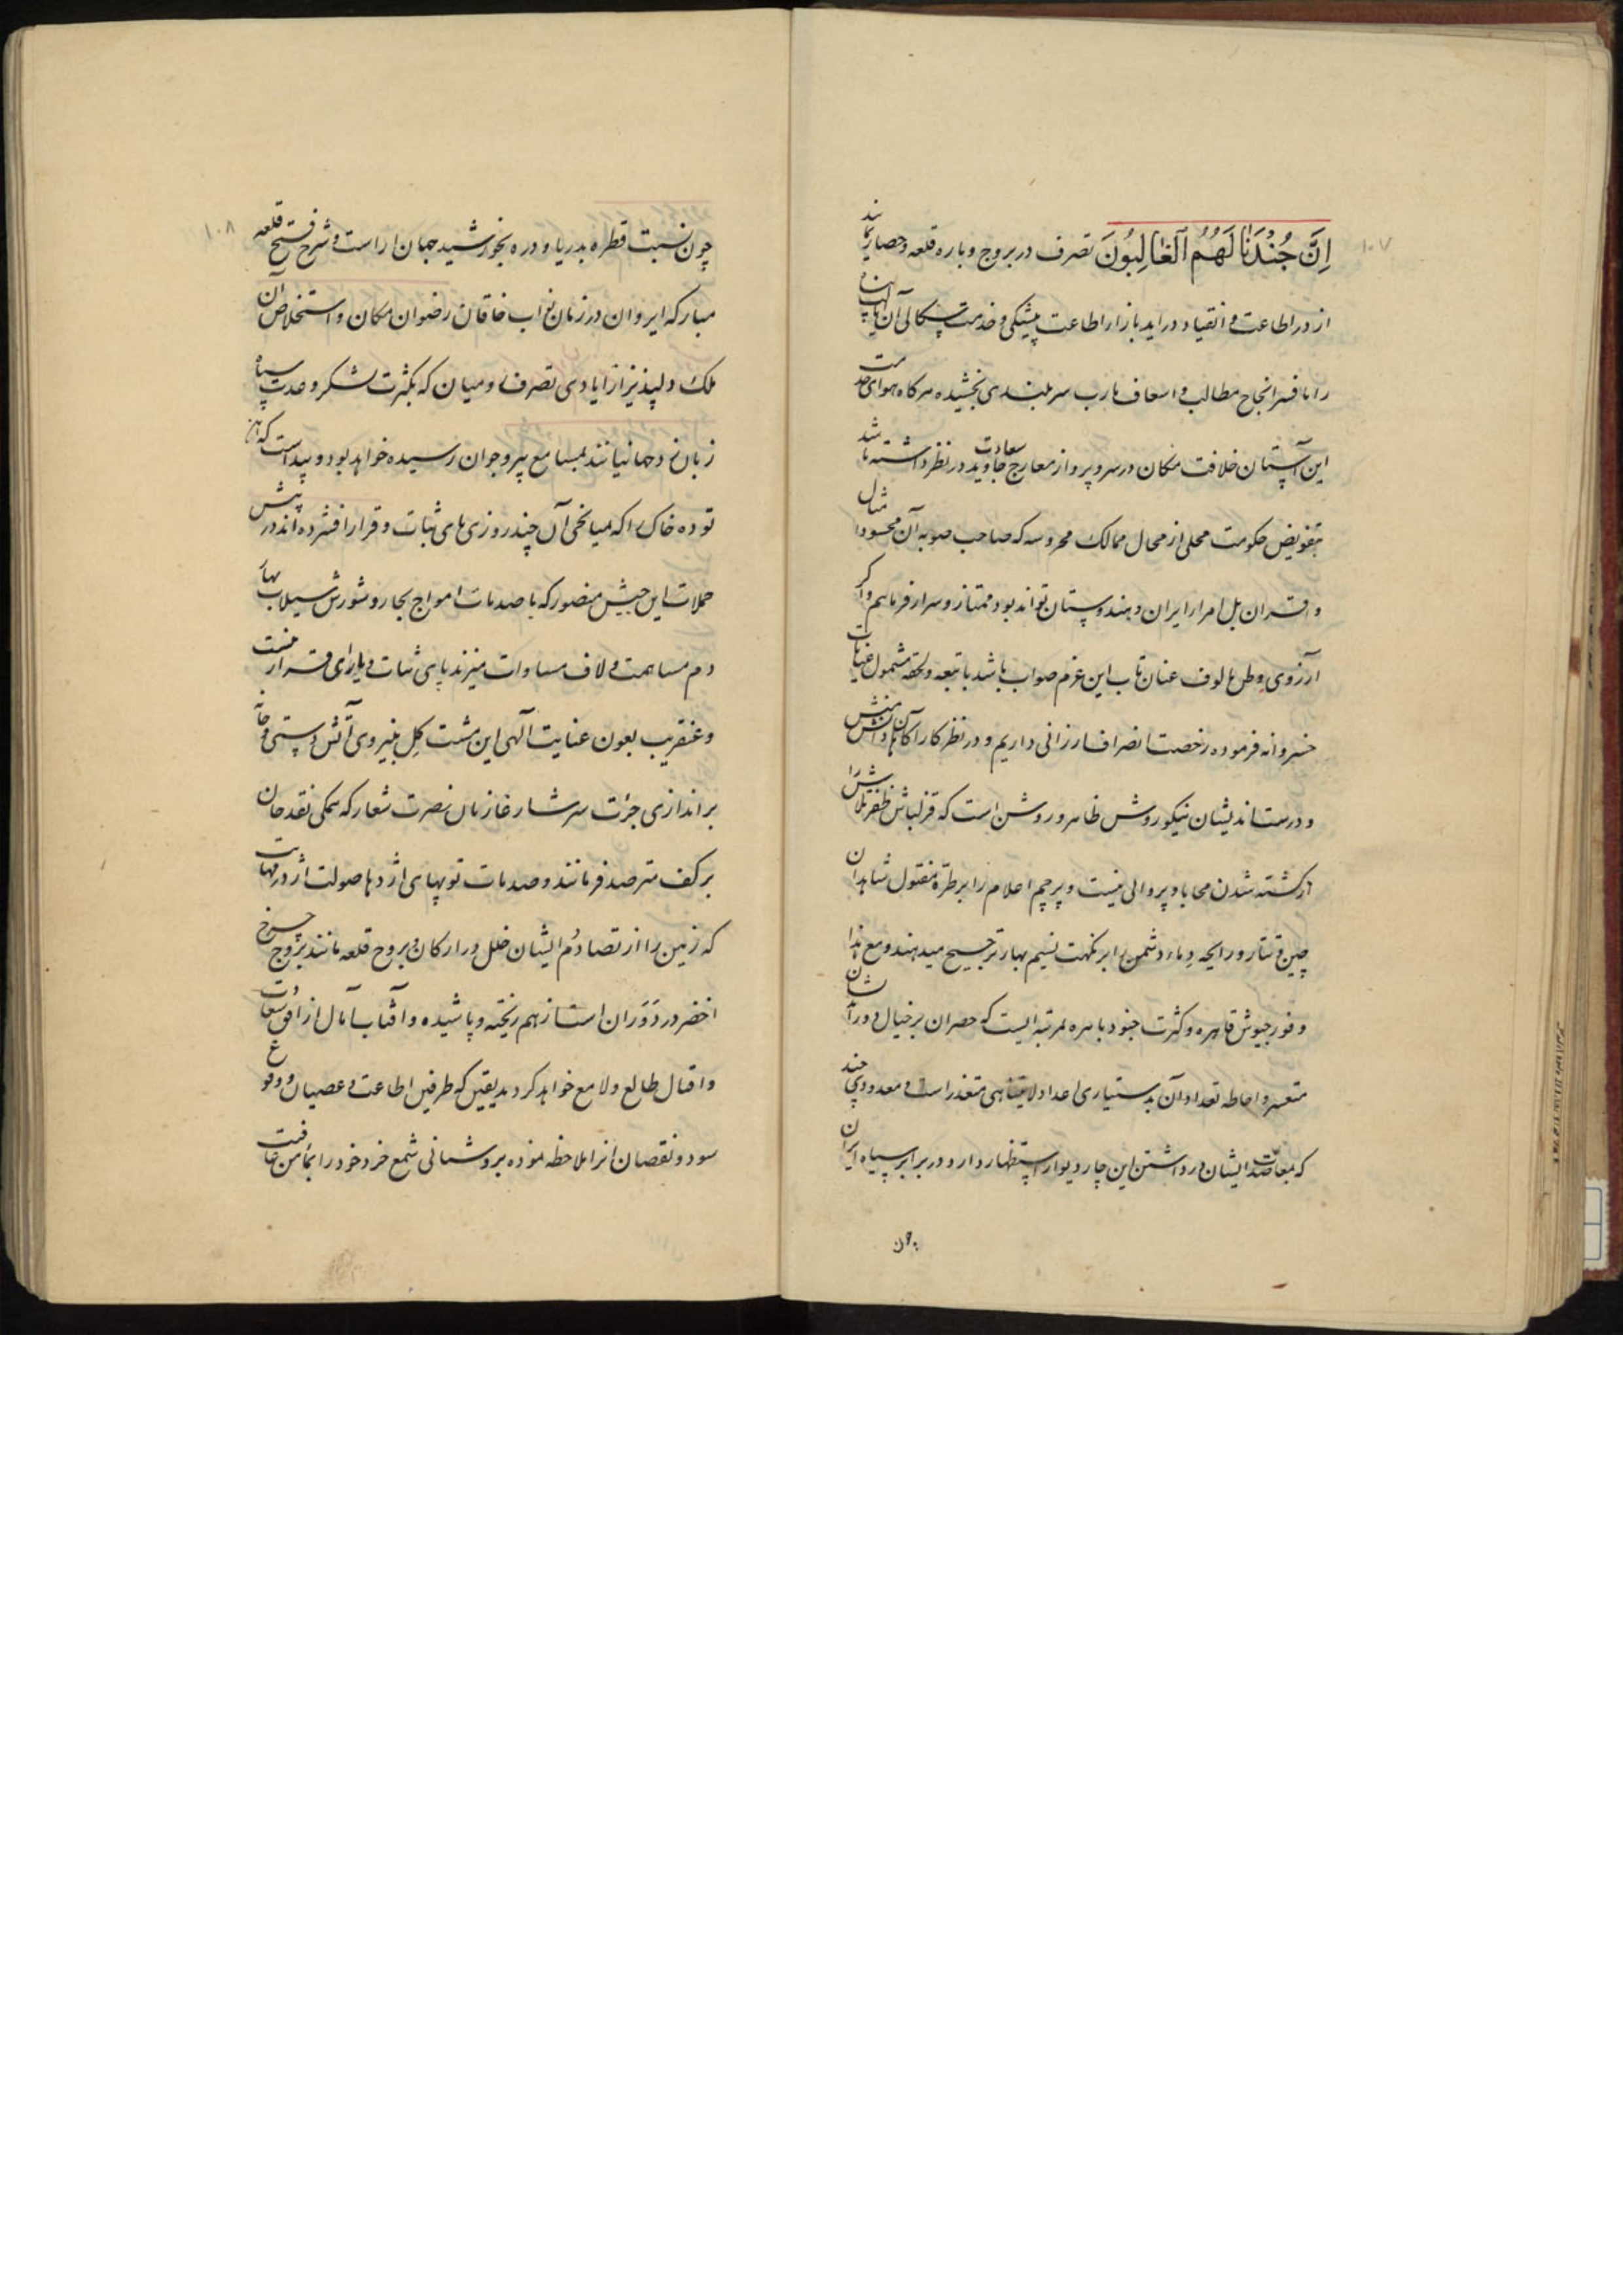 ۱۰۷
اِنَّ جُنْدَنٰا لَهُمُ الْغٰالِبُونَ تصرف در بروج و باره قلعه و حصار نمایند
از در اطاعت و انقیاد در آید باز از اطاعت پیشگی و خدمت سکالی آن
را با فسر انجاح مطالب و اسعاف مآرب سربلندی بخشیده هرگاه هوای خدمت
این آستان خلافت مکان در سر و پرواز معارج سعادت جاوید در نظر داشته باشد
بتفویض حکومت محلی از محال ممالک محروسه که صاحب صوبه آن محسود امثال
و اقران بل امراء ایران و هندوستان تواند بود ممتاز و سرافراز فرمائیم و اگر
آرزوی وطن مألوف عنان تاب این عزم صواب باشد با تبعه و لحقه مشمول عنایات
خسروانه فرموده رخصت انصراف ارزانی داریم و در نظر کارآگاهان دانش منش
و درست اندیشان نیکو روش ظاهر و روشن است که قزلباش ظفر تلاش را
از کشته شدن محابا و پروائی نیست و پرچم اعلام را بر طرّه مفتول شاهدان
چین و تتار و رایحه دماء دشمن را بر نکهت نسیم بهار ترجیح میدهند و مع هذا
وفور جیوش قاهره و کثرت جنود باهره بمرتبه ایست که حصر آن بر خیال دور
متعسر و احاطه تعداد آن بدستیاری اعداد لایتناهی متعذر است و معدودی چند
که بمعاضدت ایشان در داشتن این چار دیوار استظهار دارد در برابر سپاه ایران
چون
۱۰۸
چون نسبت قطره بدریا و ذره بخورشید جهان آراست و شرح فتح قلعه
مبارکه ایروان در زمان نواب خاقان رضوان مکان و استخلاص آن
ملک دلپذیر از ایادی تصرف رومیان که بکثرت لشکر و عدت سپاه
زبان زد جهانیانند بمسامع پیر و جوان رسیده خواهد بود و پیداست که این
توده خاک را که میانجی آن چند روزی پای ثبات و قرار افشرده اند در پیش
حملات این جیش منصور که با صدمات امواج بحار و شورش سیلاب بهار
دم مساهمت و لاف مساوات میزند پای ثبات و یارای قرار نیست
و عنقریب بعون عنایت آلهی این مشت گل بنیروی آتش دستی و خانه
براندازی جرأت سرشار غازیان نصرت شعار که همگی نقد جان
بر کف مترصد فرمانند و صدمات توپهای اژدها صولت اژدر مهابت
که زمین را از تصادُم ایشان خلل در ارکان و بروج قلعه مانند بروج چرخ
اخضر در دَوَران است از هم ریخته و پاشیده و آفتاب آمال از افق سعادت
و اقبال طالع و لامع خواهد گردید یقین که طرفین اطاعت و عصیان و وقوع
سود و نقصان آنرا ملاحظه نموده بروشنائی شمع خرد خود را بمأمن عافیت